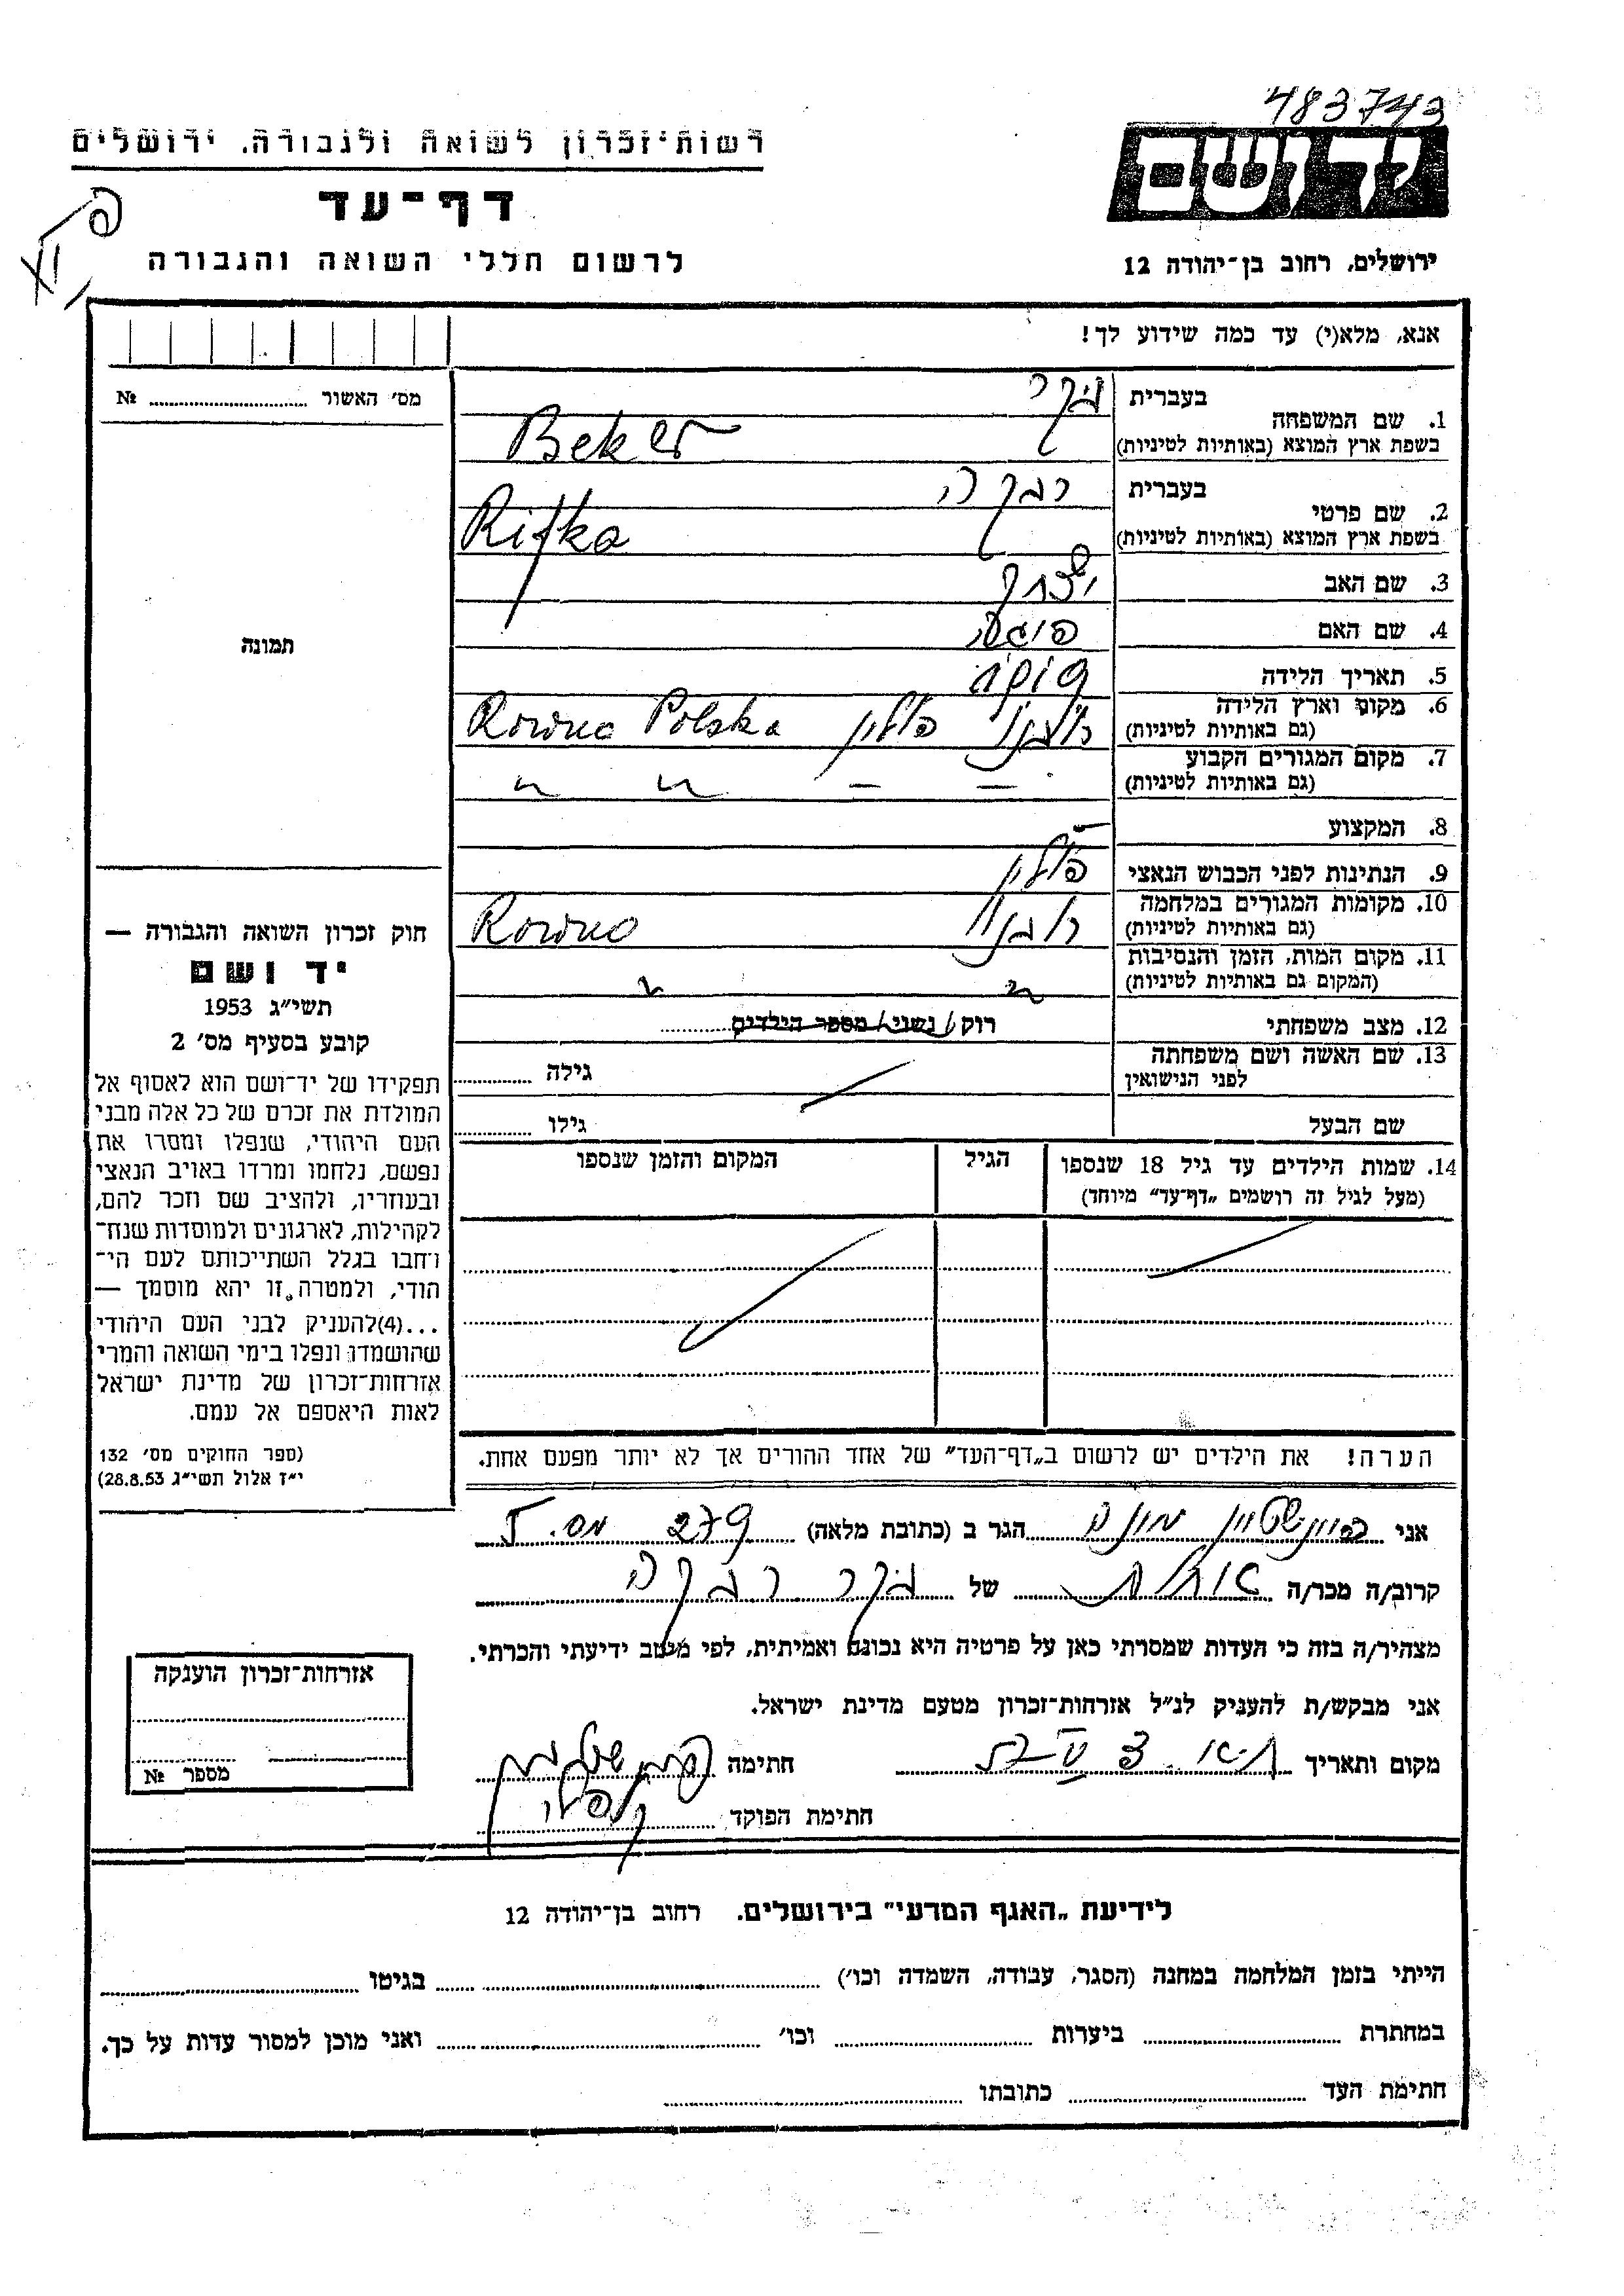 483743
רשות־זכרון לשואה ולגבורה, ירושלים
יד ושם
דף־עד
לרשום חללי השואה והגבורה
ירושלים, רחוב בן־יהודה 12
אנא, מלא(י) עד כמה שידוע לך!
מס׳ האשור № 
1. שם המשפחה
בעברית בקר
בשפת ארץ המוצא (באותיות לטיניות) Beker
2. שם פרטי
בעברית רבקה
בשפת ארץ המוצא (באותיות לטיניות) Rifka
3. שם האב יצחק
4. שם האם
5. תאריך הלידה
6. מקום וארץ הלידה
(גם באותיות לטיניות) פולין Rowno Polska
7. מקום המגורים הקבוע
(גם באותיות לטיניות) — — " "
8. המקצוע —
9. הנתינות לפני הכבוש הנאצי פולין
10. מקומות המגורים במלחמה
(גם באותיות לטיניות) Rowno
11. מקום המות, הזמן והנסיבות
(המקום גם באותיות לטיניות) " "
12. מצב משפחתי רוק/נשוי/מספר הילדים
13. שם האשה ושם משפחתה
לפני הנישואין
גילה
שם הבעל
גילו
14. שמות הילדים עד גיל 18 שנספו
(מעל לגיל זה רושמים „דף־עד” מיוחד)
הגיל
המקום והזמן שנספו
הערה! את הילדים יש לרשום ב„דף־העד” של אחד ההורים אך לא יותר מפעם אחת.
תמונה
חוק זכרון השואה והגבורה —
יד ושם
תשי״ג 1953
קובע בסעיף מס׳ 2
תפקידו של יד־ושם הוא לאסוף אל
המולדת את זכרם של כל אלה מבני
העם היהודי, שנפלו ומסרו את
נפשם, נלחמו ומרדו באויב הנאצי
ובעוזריו, ולהציב שם וזכר להם,
לקהילות, לארגונים ולמוסדות שנח־
רחבו בגלל השתייכותם לעם הי־
הודי, ולמטרה זו יהא מוסמך —
...(4)להעניק לבני העם היהודי
שהושמדו ונפלו בימי השואה והמרי
אזרחות־זכרון של מדינת ישראל
לאות היאספם אל עמם.
(ספר החוקים מס׳ 132
י״ז אלול תשי״ג 28.8.53)
אני הגר ב (כתובת מלאה) 279
קרוב/ה מכר/ה של בקר רבקה
מצהיר/ה בזה כי העדות שמסרתי כאן על פרטיה היא נכונה ואמיתית, לפי מיטב ידיעתי והכרתי.
אני מבקש/ת להעניק לנ״ל אזרחות־זכרון מטעם מדינת ישראל.
מקום ותאריך חתימה
חתימת הפוקד
אזרחות־זכרון הוענקה
מספר №
לידיעת „האגף המדעי” בירושלים, רחוב בן־יהודה 12
הייתי בזמן המלחמה במחנה (הסגר, עבודה, השמדה וכו׳) בגיטו
במחתרת ביערות וכו׳ ואני מוכן למסור עדות על כך.
חתימת העד כתובתו